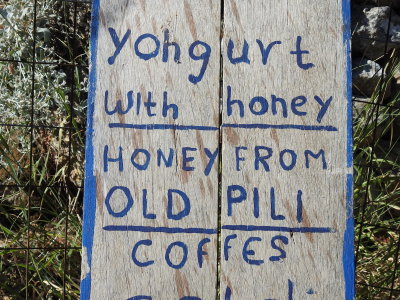 Yohgurt
with honey
HONEY FROM
OLD PILI
COFFES